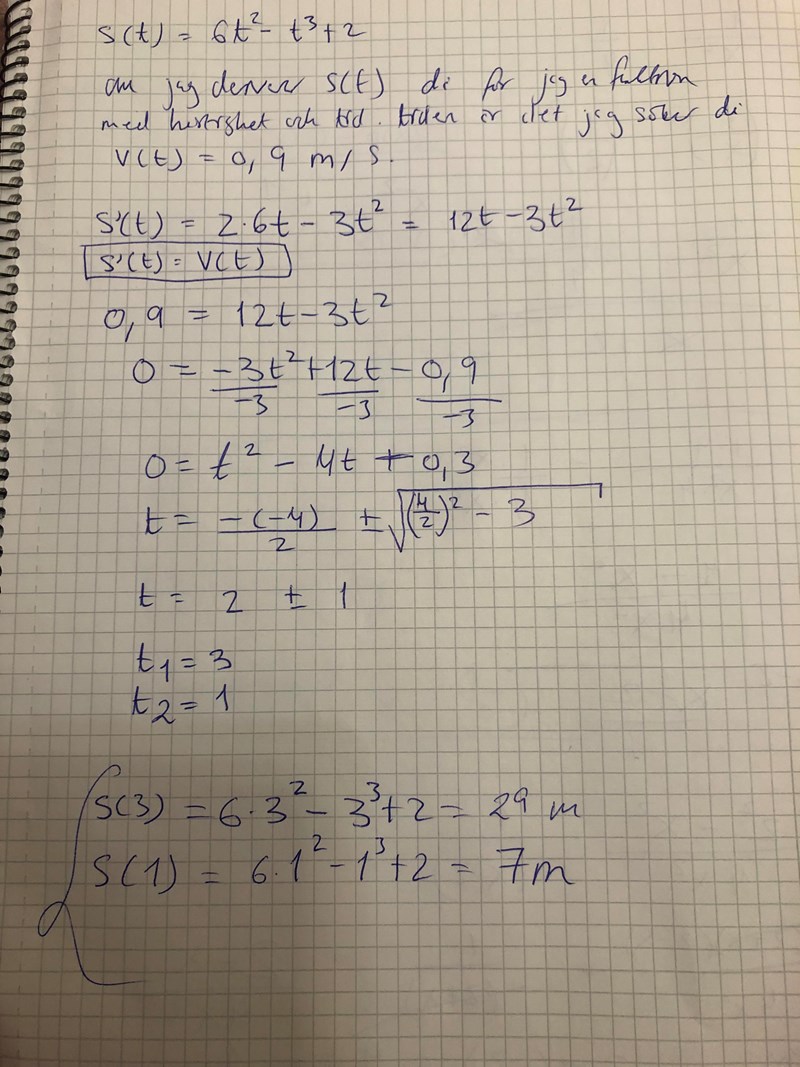 S(t) = 6t² - t³ + 2
om jag deriverar S(t) då får jag en funktion
med hastighet och tid. tiden är det jag söker då
V(t) = 0,9 m/s.
S'(t) = 2·6t - 3t² = 12t - 3t²
S'(t) = V(t)
0,9 = 12t - 3t²
0 = -3t²/-3 + 12t/-3 - 0,9/-3
0 = t² - 4t + 0,3
t = -(-4)/2 ± √((4/2)² - 3)
t = 2 ± 1
t₁ = 3
t₂ = 1
S(3) = 6·3² - 3³ + 2 = 29 m
S(1) = 6·1² - 1³ + 2 = 7m